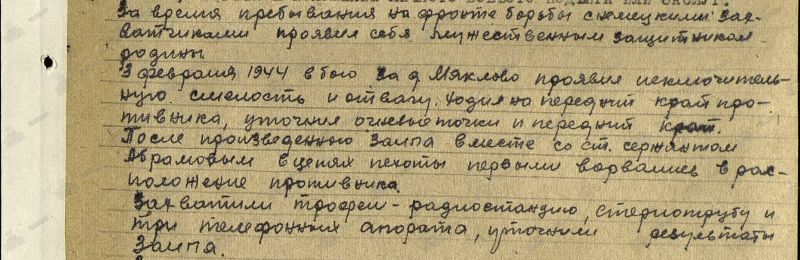 За время пребывания на фронте борьбы с немецкими зах-
ватчиками проявил себя мужественным защитником
родины.
3 февраля 1944 в бою за д Мяклово проявил исключитель-
ную смелость и отвагу. Ходил на передний край про-
тивника, уточнил огневые точки и передний край.
После произведенного залпа вместе со ст. сержантом
Абрамовым в цепях пехоты первыми ворвались в рас-
положение противника.
Захватили трофеи - радиостанцию, стериотрубу и
три телефонных апарата, уточнили результаты
залпа.